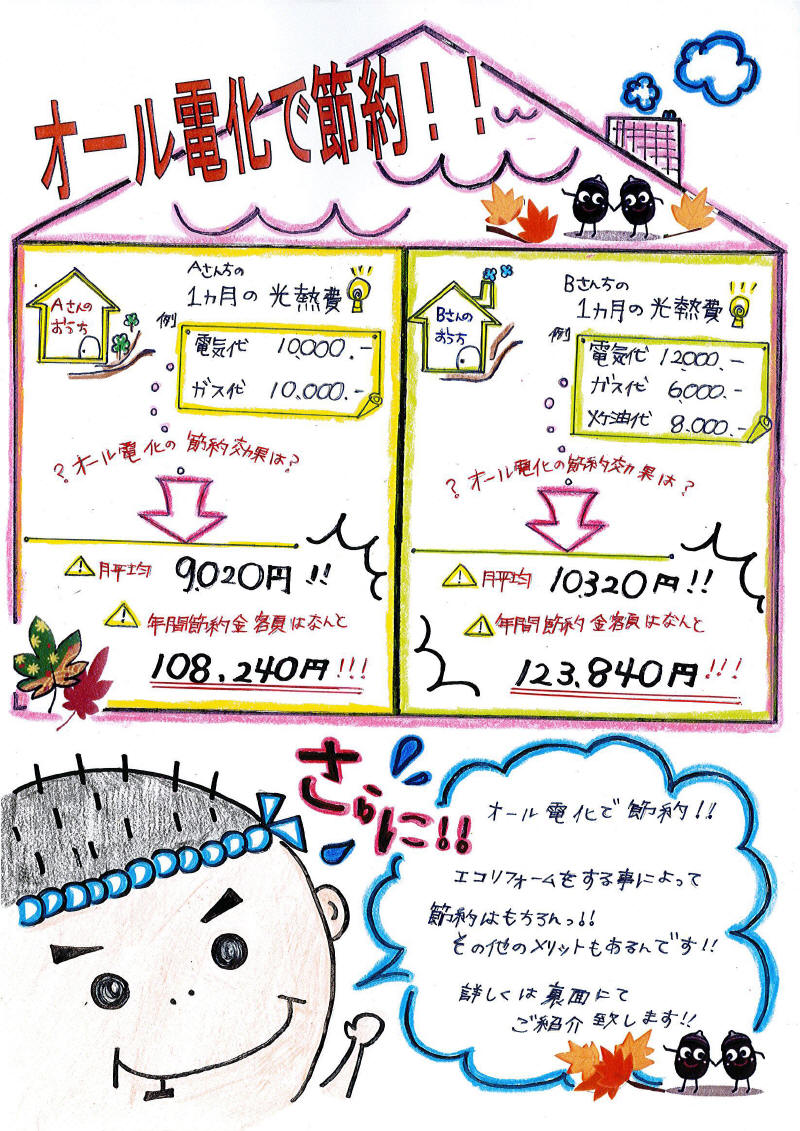 オール電化で節約！！
Aさんの
おうち
Aさん宅の
1ヵ月の光熱費
例
電気代 10,000.-
ガス代 10,000.-
？オール電化の節約効果は？
月平均 9,020円!!
年間節約金額はなんと
108,240円!!!
Bさんの
おうち
Bさん宅の
1ヵ月の光熱費
例
電気代 12,000.-
ガス代 6,000.-
灯油代 8,000.-
？オール電化の節約効果は？
月平均 10,320円!!
年間節約金額はなんと
123,840円!!!
さらに!!
オール電化で節約!!
エコリフォームをする事によって
節約はもちろんっ!!
その他のメリットもあるんです!!
詳しくは裏面にて
ご紹介致します!!